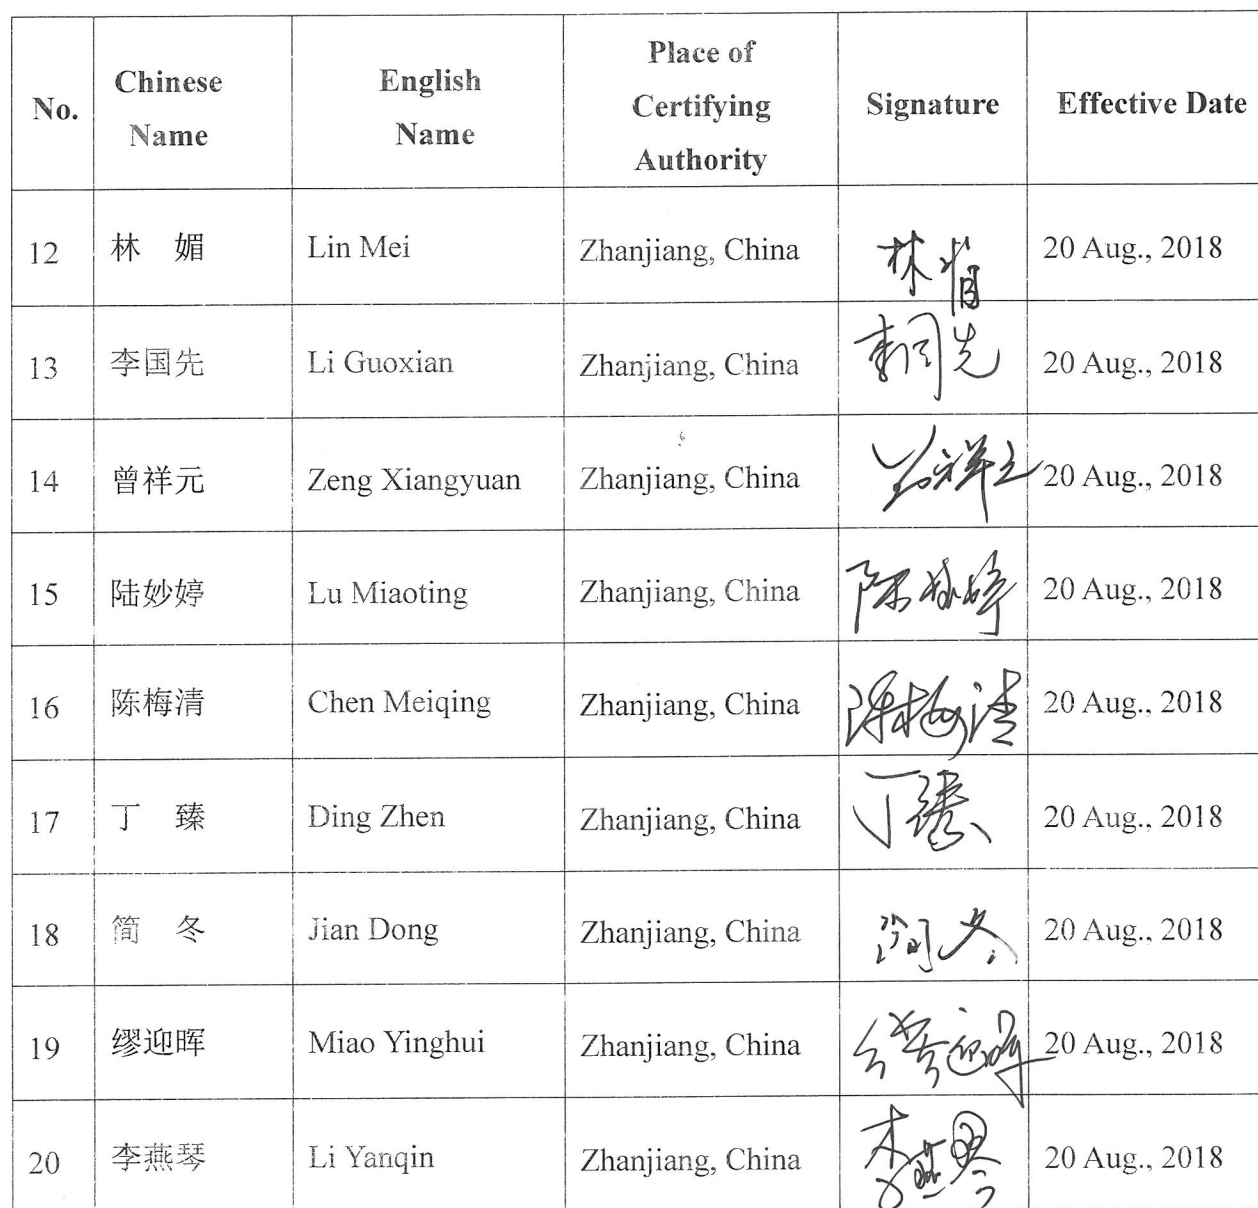 No.
Chinese
Name
English
Name
Place of
Certifying
Authority
Signature
Effective Date
12 林 媚 Lin Mei Zhanjiang, China 林媚 20 Aug., 2018
13 李国先 Li Guoxian Zhanjiang, China 李国先 20 Aug., 2018
14 曾祥元 Zeng Xiangyuan Zhanjiang, China 曾祥元 20 Aug., 2018
15 陆妙婷 Lu Miaoting Zhanjiang, China 20 Aug., 2018
16 陈梅清 Chen Meiqing Zhanjiang, China 陈梅清 20 Aug., 2018
17 丁 臻 Ding Zhen Zhanjiang, China 丁臻 20 Aug., 2018
18 简 冬 Jian Dong Zhanjiang, China 简冬 20 Aug., 2018
19 缪迎晖 Miao Yinghui Zhanjiang, China 缪迎晖 20 Aug., 2018
20 李燕琴 Li Yanqin Zhanjiang, China 李燕琴 20 Aug., 2018